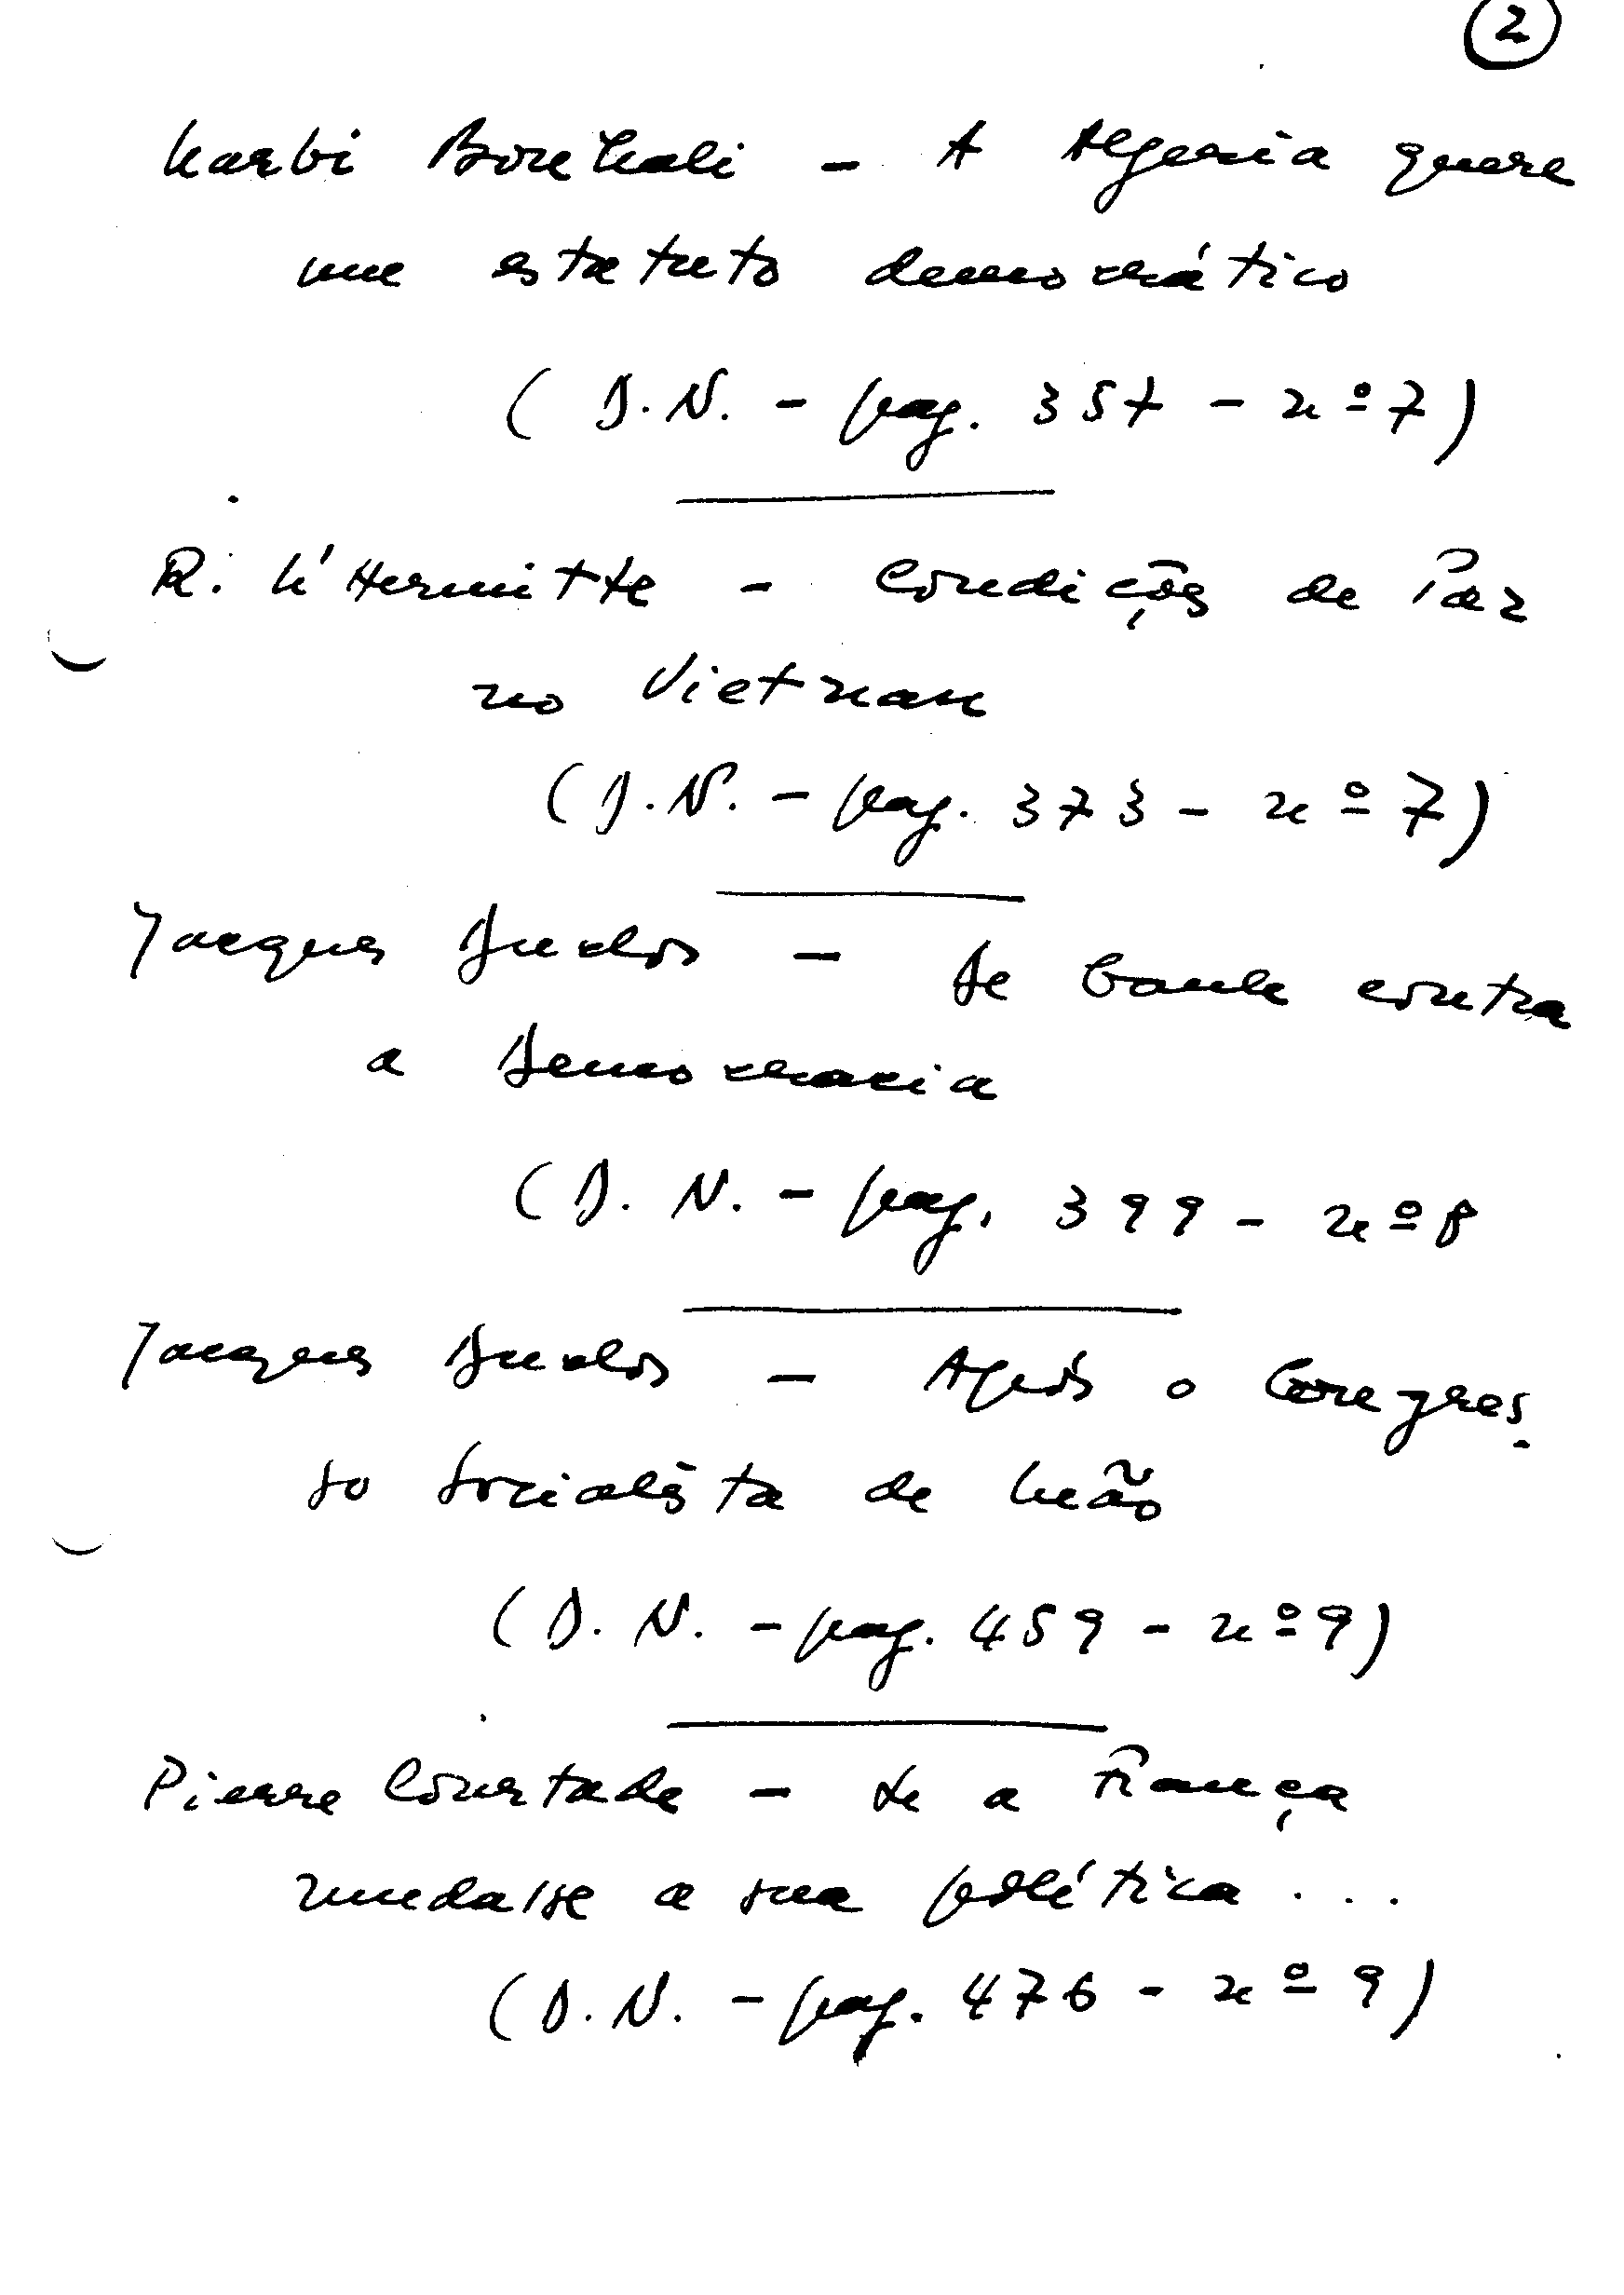 2
Larbi Bouhali - A Algeria quere
um estatuto democrático
(D.N. - pag. 357 - nº 7)
R. L'Hermitte - Condições de Paz
no Vietnam
(D.N. - pag. 373 - nº 7)
Jacques Duclos - De Gaulle contra
a Democracia
(D. N. - pag. 399 - nº 8
Jacques Duclos - Após o Congres
so Socialista de Leão
(D. N. - pag. 459 - nº 9)
Pierre Courtade - Se a França
mudasse a sua política ...
(D. N. - pag. 476 - nº 9)